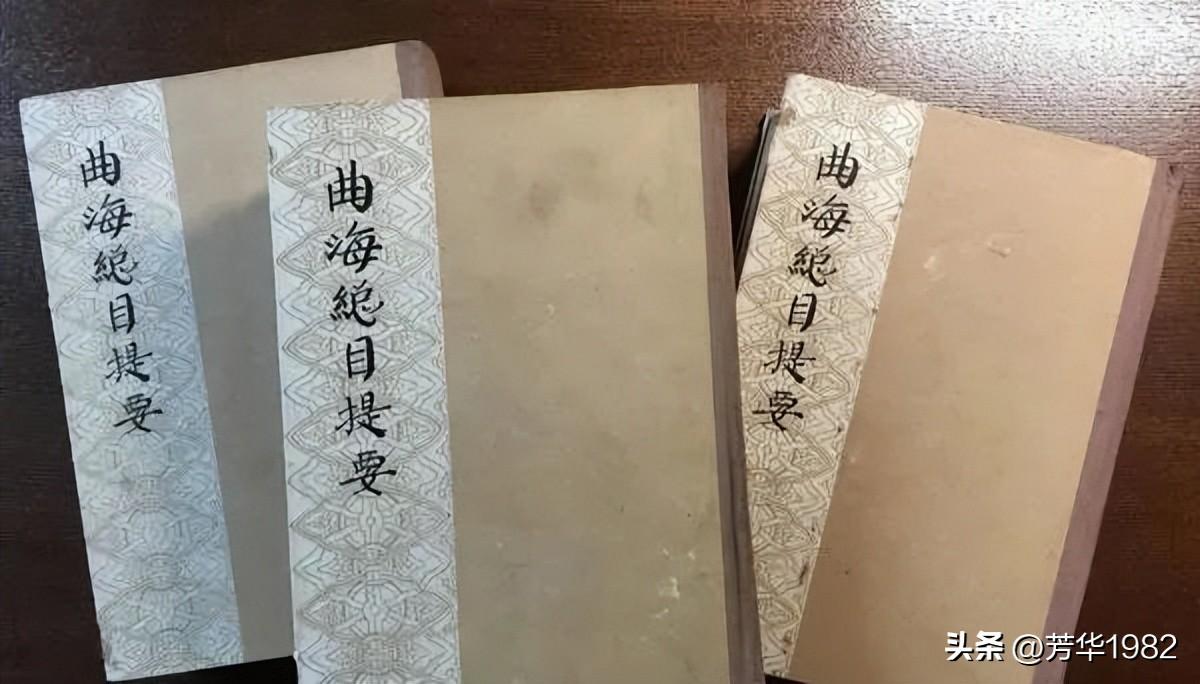 曲海總目提要
曲海總目提要
曲海總目提要
头条 @芳华1982